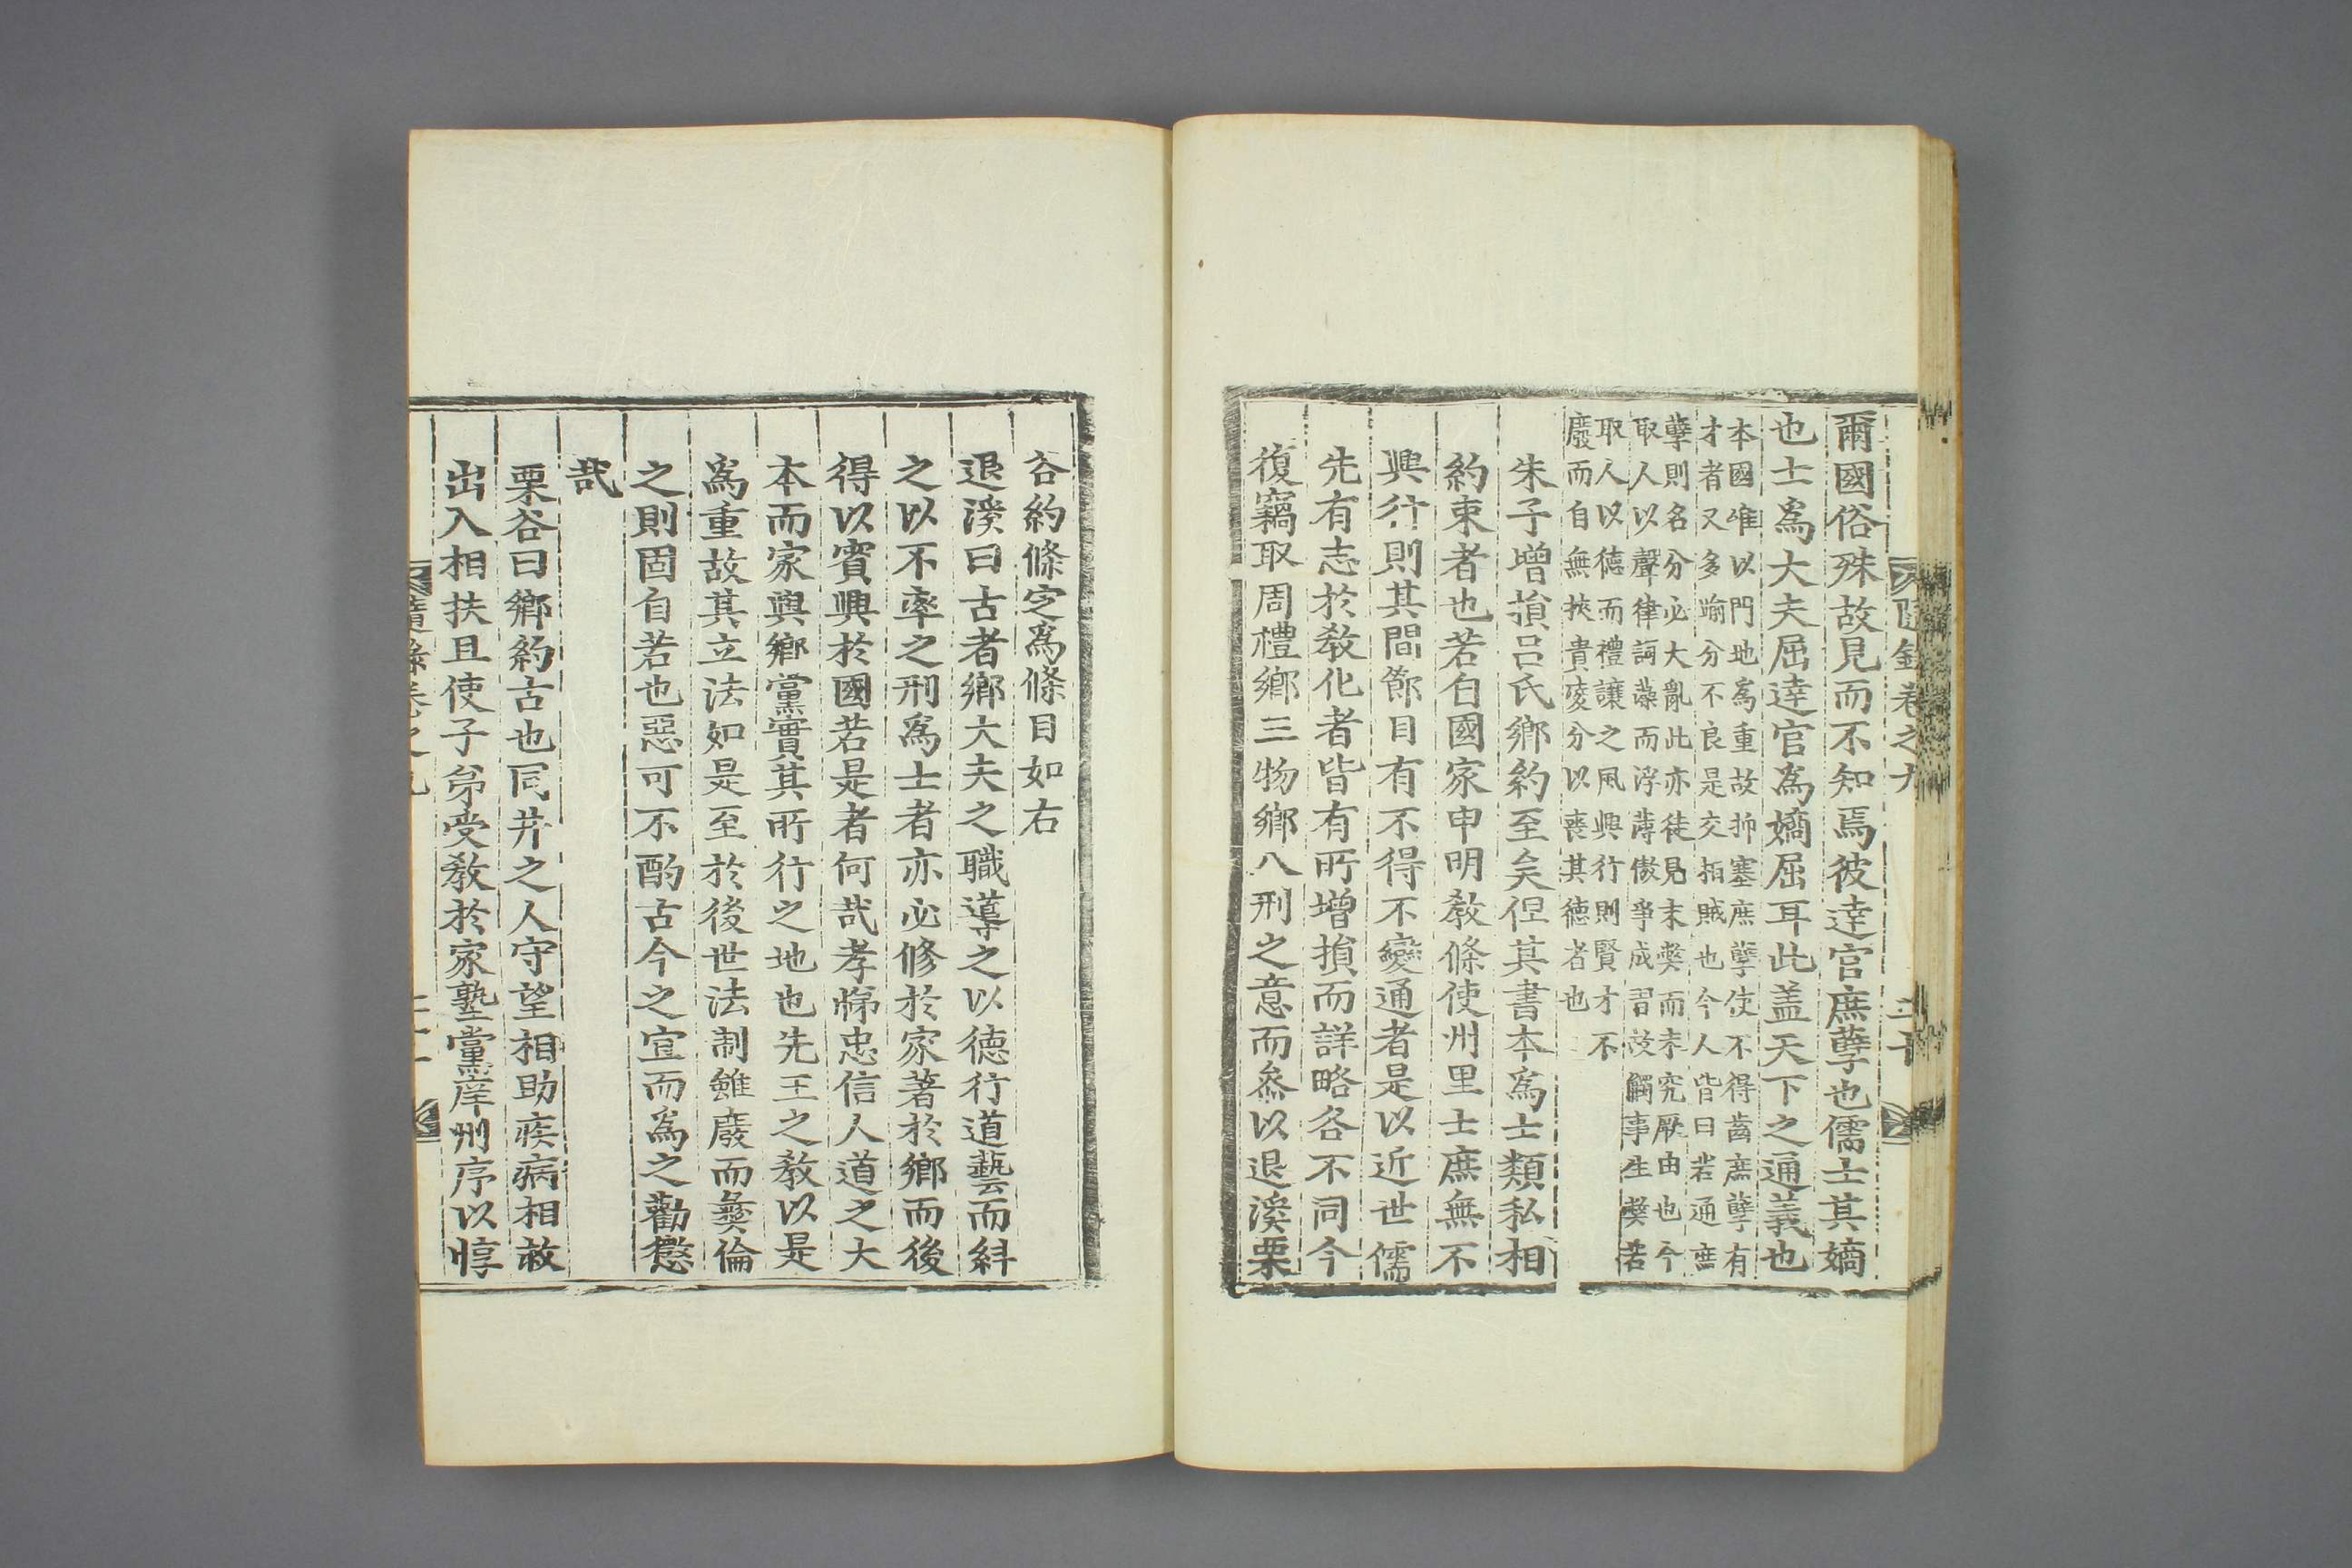 隨錄卷之九
二十
爾國俗殊故見而不知焉彼達官庶孽也儒士其嫡
也士爲大夫屈達官爲嫡屈耳此盖天下之通義也
本國唯以門地爲重故抑塞庶孽使不得齒庶孽有
才者又多踰分不良是交相賊也今人皆曰若通庶
孽則名分必大亂此亦徒見末弊而未究厥由也今
取人以聲律詞藻而浮薄傲爭成習故觸事生弊若
取人以德而禮讓之風興行則賢才不
廢而自無挾貴凌分以喪其德者也
朱子增損呂氏鄕約至矣但其書本爲士類私相
約束者也若自國家申明敎條使州里士庶無不
興行則其間節目有不得不變通者是以近世儒
先有志於敎化者皆有所增損而詳略各不同今
復竊取周禮鄕三物鄕八刑之意而叅以退溪栗
谷約條定爲條目如右
退溪曰古者鄕大夫之職導之以德行道藝而糾
之以不率之刑爲士者亦必修於家著於鄕而後
得以賓興於國若是者何哉孝悌忠信人道之大
本而家與鄕黨實其所行之地也先王之敎以是
爲重故其立法如是至於後世法制雖廢而彝倫
之則固自若也惡可不酌古今之宜而爲之勸懲
哉
栗谷曰鄕約古也同井之人守望相助疾病相救
出入相扶且使子弟受敎於家塾黨庠州序以惇